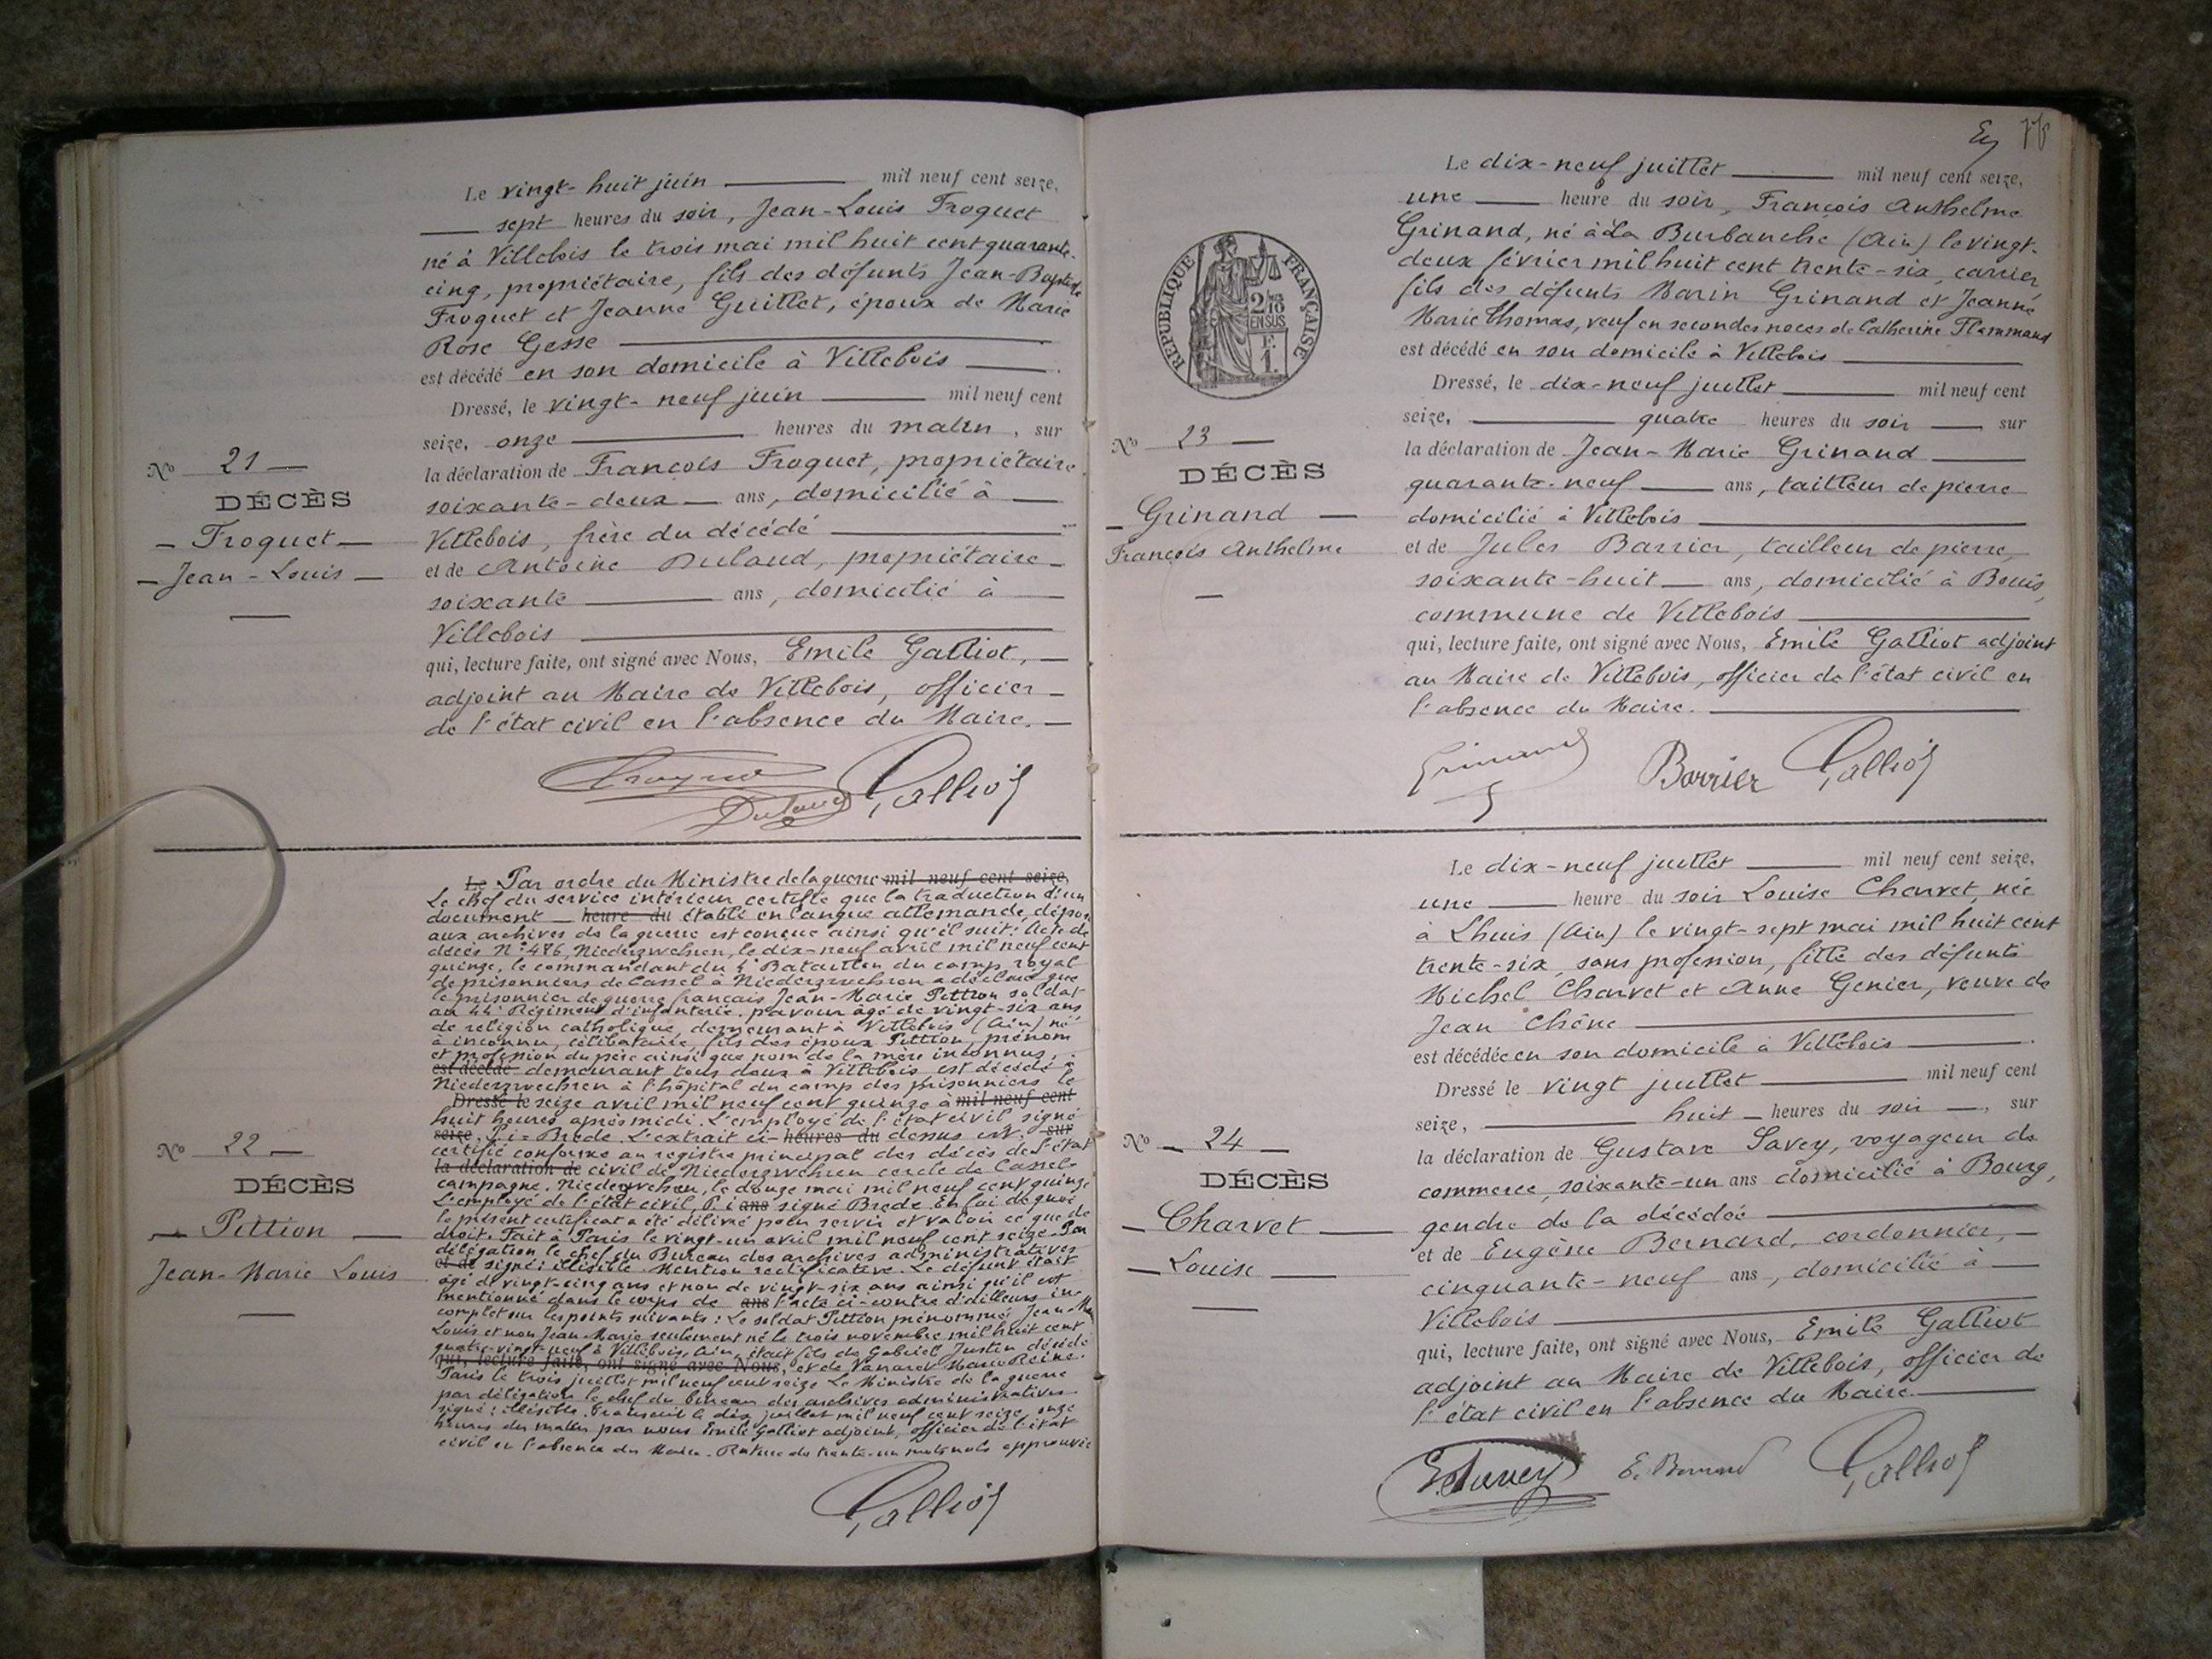 Le vingt-huit juin mil neuf cent seize,
sept heures du soir, Jean-Louis Froquet
né à Villebois le trois mai mil huit cent quarante-
cinq, propriétaire, fils des défunts Jean-Baptiste
Froquet et Jeanne Guillet, époux de Marie
Rose Gesse
est décédé en son domicile à Villebois
Dressé, le vingt-neuf juin mil neuf cent
seize, onze heures du matin, sur
la déclaration de François Froquet, propriétaire
soixante-deux ans, domicilié à
Villebois, frère du décédé
et de Antoine Dulaud, propriétaire
soixante ans, domicilié à
Villebois
qui, lecture faite, ont signé avec Nous, Emile Galliot,
adjoint au Maire de Villebois, officier
de l'état civil en l'absence du Maire.
Galliot
No 21
DÉCÈS
Froquet
Jean-Louis
Le Par ordre du Ministre de la guerre mil neuf cent seize,
Le chef du service intérieur certifie que la traduction d'un
document heure du établi en langue allemande, déposé
aux archives de la guerre est conçue ainsi qu'il suit: Acte de
décès N° 486, Niederzwehren, le dix-neuf avril mil neuf cent
quinze, le commandant du Bataillon du camp royal
de prisonniers de Cassel à Niederzwehren a déclaré que
le prisonnier de guerre français Jean-Marie Pittion soldat
au 44e Régiment d'infanterie, paveur âgé de vingt-six ans
de religion catholique, demeurant à Villebois (Ain) né
à inconnu, célibataire, fils des époux Pittion, prénom
et profession du père ainsi que nom de la mère inconnus,
est décédé demeurant tous deux à Villebois est décédé à
Niederzwehren à l'hôpital du camp des prisonniers le
Dressé le seize avril mil neuf cent quinze à mil neuf cent
huit heures après midi. L'employé de l'état civil signé
seize, p. i = Brede. L'extrait ci-heures du dessus est sur
certifié conforme au registre principal des décès de l'état
la déclaration de civil de Niederzwehren cercle de Cassel
campagne. Niederzwehren, le douze mai mil neuf cent quinze
L'employé de l'état civil, p. i ans signé Brede. En foi de quoi
le présent certificat a été délivré pour servir et valoir ce que de
droit. Fait à Paris le vingt-un avril mil neuf cent seize. Par
délégation le chef du Bureau des archives administratives
et de signé: illisible. Mention rectificative. Le défunt était
âgé de vingt-cinq ans et non de vingt-six ans ainsi qu'il est
mentionné dans le corps de ans l'acte ci-contre d'ailleurs in-
complet sur les points suivants: Le soldat Pittion prénommé Jean-Marie
Louis et non Jean-Marie seulement né le trois novembre mil huit cent
quatre-vingt-neuf à Villebois, Ain, était fils de Gabriel Justin décédé
qui, lecture faite, ont signé avec Nous, et de Vanarel Marie Reine.
Paris le trois juillet mil neuf cent seize Le Ministre de la guerre
par délégation le chef du bureau des archives administratives
signé: illisible. Transcrit le dix juillet mil neuf cent seize, onze
heures du matin par nous Emile Galliot adjoint, officier de l'état
civil en l'absence du Maire. Rature de trente-un mots nuls approuvée
Galliot
No 22
DÉCÈS
Pittion
Jean-Marie Louis
RÉPUBLIQUE FRANÇAISE
2/10
EN SUS
F.
1.
Le dix-neuf juillet mil neuf cent seize,
une heure du soir, François Anthelme
Grinand, né à La Burbanche (Ain) le vingt-
deux février mil huit cent trente-six, carrier,
fils des défunts Marin Grinand et Jeanne
Marie Thomas, veuf en secondes noces de Catherine Flammand
est décédé en son domicile à Villebois
Dressé, le dix-neuf juillet mil neuf cent
seize, quatre heures du soir sur
la déclaration de Jean-Marie Grinand
quarante-neuf ans, tailleur de pierre
domicilié à Villebois
et de Jules Barrier, tailleur de pierre,
soixante-huit ans, domicilié à Bouis,
commune de Villebois
qui, lecture faite, ont signé avec Nous, Emile Galliot adjoint
au Maire de Villebois, officier de l'état civil en
l'absence du Maire.
Grinand Barrier Galliot
No 23
DÉCÈS
Grinand
François Anthelme
Le dix-neuf juillet mil neuf cent seize,
une heure du soir Louise Charvet, née
à Lhuis (Ain) le vingt-sept mai mil huit cent
trente-six, sans profession, fille des défunts
Michel Charvet et Anne Genier, veuve de
Jean Chêne
est décédée en son domicile à Villebois
Dressé le vingt juillet mil neuf cent
seize, huit heures du soir, sur
la déclaration de Gustave Savey, voyageur de
commerce, soixante-un ans domicilié à Bourg,
gendre de la décédée
et de Eugène Bernard, cordonnier,
cinquante-neuf ans, domicilié à
Villebois
qui, lecture faite, ont signé avec Nous, Emile Galliot
adjoint au Maire de Villebois, officier de
l'état civil en l'absence du Maire.
Savey E. Bernard Galliot
No 24
DÉCÈS
Charvet
Louise